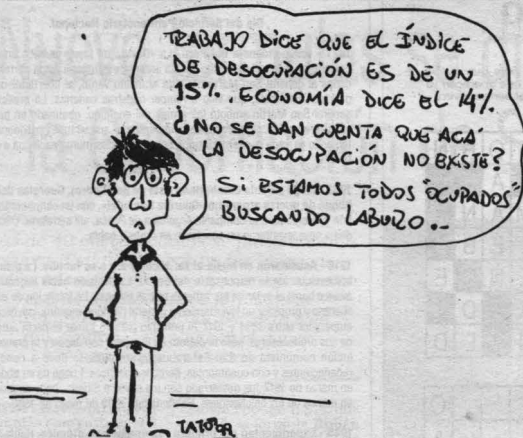 TRABAJO DICE QUE EL ÍNDICE
DE DESOCUPACIÓN ES DE UN
15%. ECONOMÍA DICE EL 14%.
¿NO SE DAN CUENTA QUE ACÁ
LA DESOCUPACIÓN NO EXISTE?
SI ESTAMOS TODOS "OCUPADOS"
BUSCANDO LABURO...